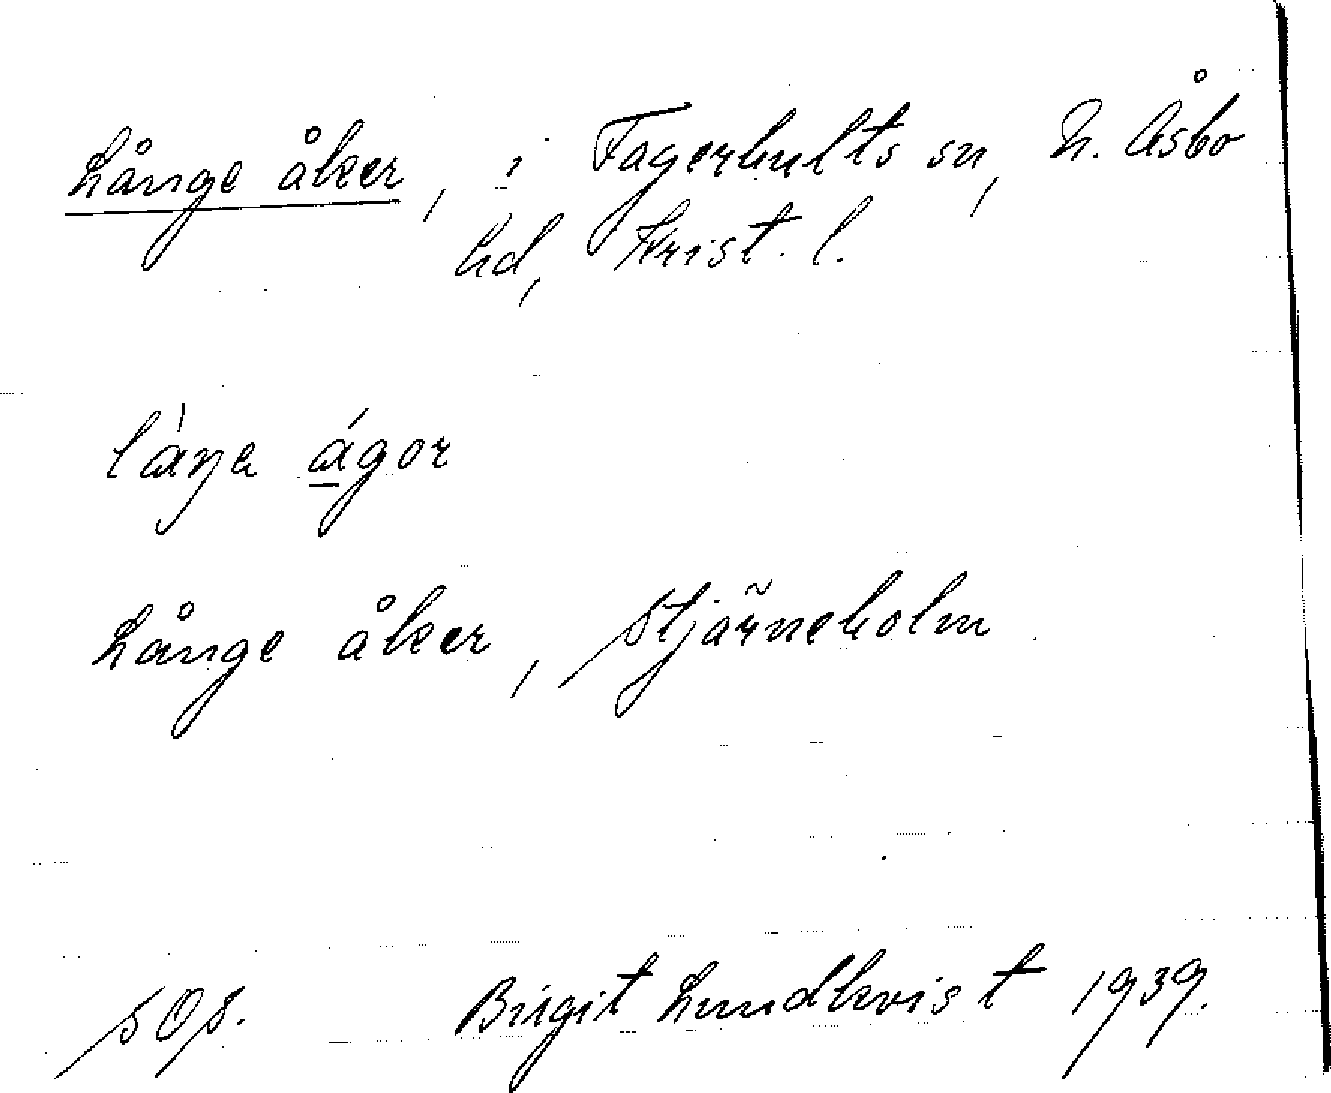 Långe åker, i Fagerhults sn, N. Åsbo
hd, Krist. l.
làŋa ágor
Långe åker, Stjärneholm
SOs. Birgit Lundkvist 1939.